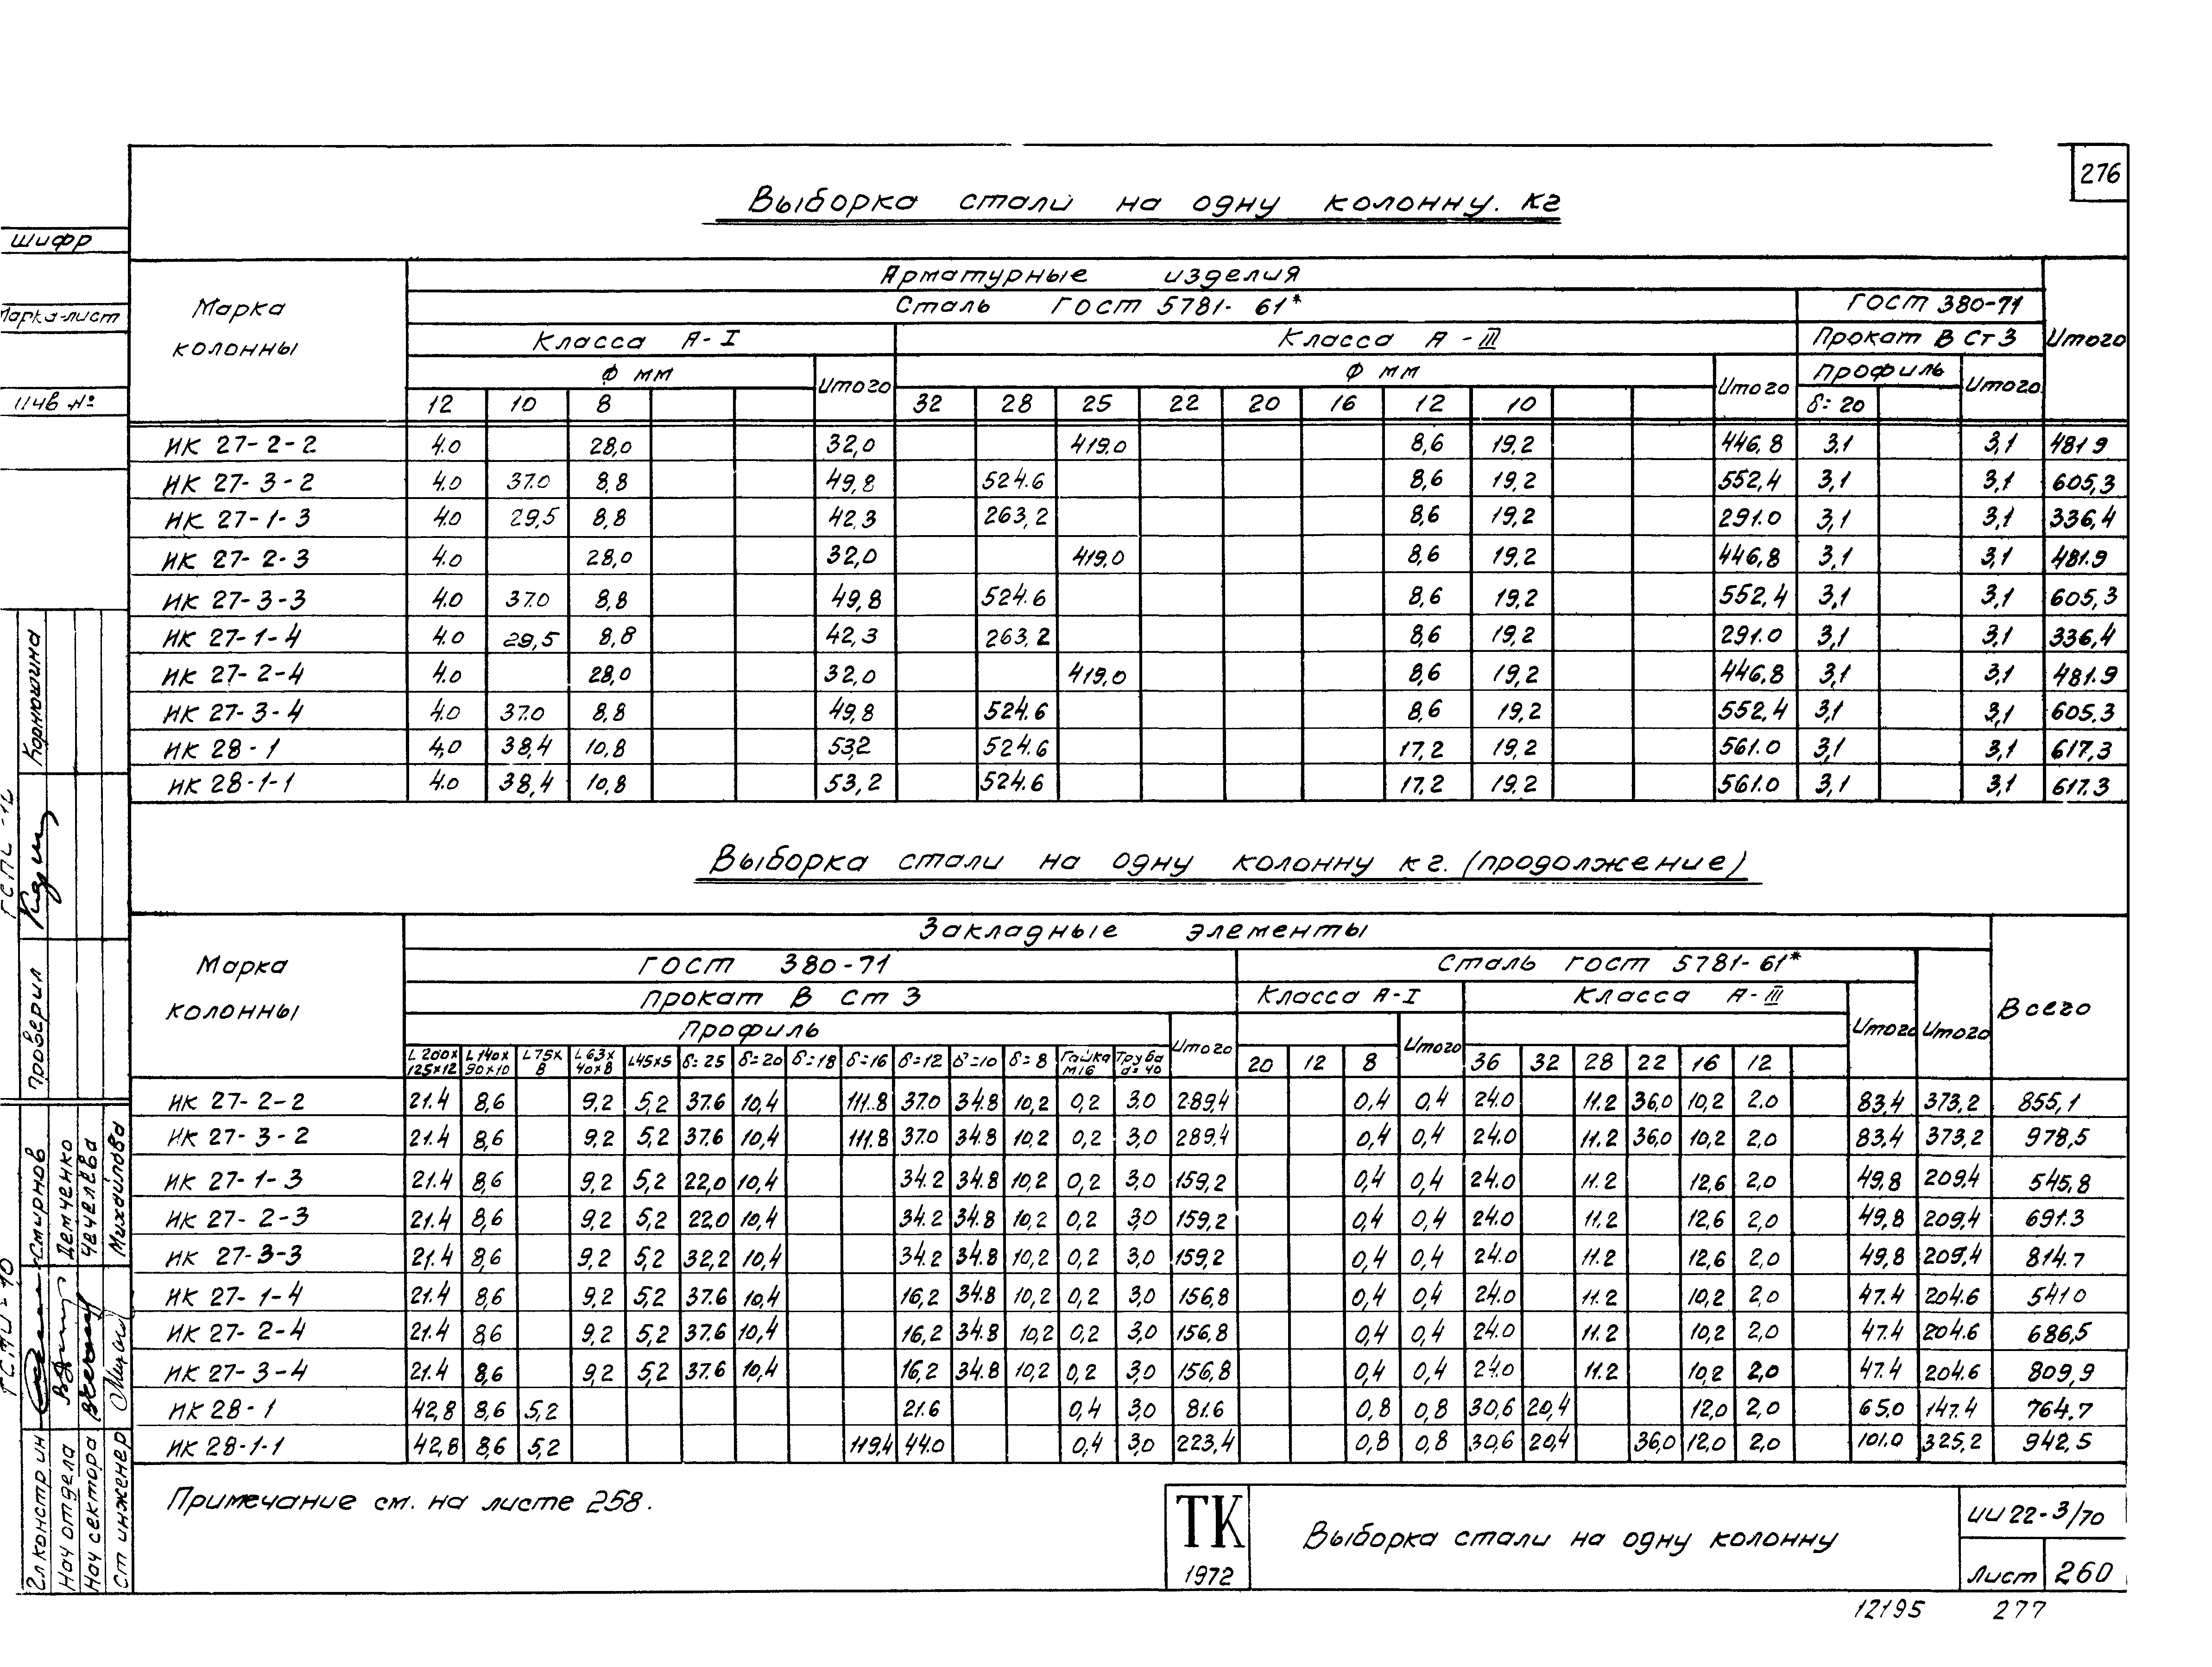 276
Выборка стали на одну колонну. кг
Арматурные изделия
Сталь ГОСТ 5781-61* ГОСТ 380-71
Марка колонны Класса А-I Класса А-III Прокат В Ст3 Итого
Ф мм Итого Ф мм Итого Профиль Итого
12 10 8 32 28 25 22 20 16 12 10 δ=20
ИК 27-2-2 4.0 28,0 32,0 419.0 8,6 19,2 446,8 3,1 3,1 481.9
ИК 27-3-2 4.0 37.0 8,8 49,8 524.6 8,6 19,2 552,4 3,1 3,1 605,3
ИК 27-1-3 4.0 29,5 8,8 42,3 263,2 8,6 19,2 291.0 3,1 3,1 336,4
ИК 27-2-3 4.0 28,0 32,0 419,0 8,6 19,2 446,8 3,1 3,1 481.9
ИК 27-3-3 4.0 37.0 8,8 49,8 524.6 8,6 19,2 552,4 3,1 3,1 605,3
ИК 27-1-4 4.0 29,5 8,8 42,3 263,2 8,6 19,2 291.0 3,1 3,1 336,4
ИК 27-2-4 4.0 28,0 32,0 419,0 8,6 19,2 446,8 3,1 3,1 481.9
ИК 27-3-4 4.0 37.0 8,8 49,8 524.6 8,6 19,2 552,4 3,1 3,1 605.3
ИК 28-1 4,0 38,4 10,8 53,2 524.6 17,2 19,2 561.0 3,1 3,1 617,3
ИК 28-1-1 4.0 38,4 10,8 53,2 524.6 17,2 19,2 561.0 3,1 3,1 617.3
Выборка стали на одну колонну кг. (продолжение)
Закладные элементы
ГОСТ 380-71 Сталь ГОСТ 5781-61*
Марка колонны Прокат В Ст 3 Класса А-I Класса А-III Итого Итого Всего
Профиль Итого Итого
L200x125x12 L140x90x10 L75x8 L63x40x8 L45x5 δ=25 δ=20 δ=18 δ=16 δ=12 δ=10 δ=8 Гайка М16 Труба d=40 20 12 8 36 32 28 22 16 12
ИК 27-2-2 21.4 8,6 9,2 5,2 37.6 10,4 111.8 37.0 34.8 10,2 0,2 3,0 289,4 0,4 0,4 24.0 11.2 36,0 10,2 2.0 83,4 373,2 855,1
ИК 27-3-2 21.4 8,6 9,2 5,2 37.6 10,4 111.8 37.0 34.8 10,2 0,2 3,0 289,4 0,4 0,4 24.0 11.2 36,0 10,2 2,0 83,4 373,2 978,5
ИК 27-1-3 21.4 8,6 9,2 5,2 22,0 10,4 34.2 34.8 10,2 0,2 3,0 159,2 0,4 0,4 24.0 11.2 12,6 2,0 49,8 209.4 545,8
ИК 27-2-3 21.4 8,6 9,2 5,2 22,0 10,4 34.2 34.8 10,2 0,2 3,0 159,2 0,4 0,4 24.0 11.2 12,6 2,0 49,8 209,4 691.3
ИК 27-3-3 21.4 8,6 9,2 5,2 32,2 10,4 34.2 34.8 10,2 0,2 3,0 159,2 0,4 0,4 24.0 11.2 12,6 2,0 49,8 209,4 814.7
ИК 27-1-4 21.4 8,6 9,2 5,2 37.6 10,4 16,2 34.8 10,2 0,2 3,0 156,8 0,4 0,4 24.0 11.2 10,2 2,0 47.4 204.6 541.0
ИК 27-2-4 21.4 8,6 9,2 5,2 37.6 10,4 16,2 34.8 10,2 0,2 3,0 156,8 0,4 0,4 24.0 11.2 10,2 2,0 47.4 204.6 686,5
ИК 27-3-4 21.4 8,6 9,2 5,2 37.6 10,4 16,2 34.8 10,2 0,2 3,0 156,8 0,4 0,4 24.0 11.2 10,2 2,0 47.4 204.6 809,9
ИК 28-1 42,8 8,6 5,2 21.6 0,4 3,0 81.6 0,8 0,8 30,6 20,4 12,0 2,0 65.0 147.4 764.7
ИК 28-1-1 42,8 8,6 5,2 119,4 44.0 0,4 3,0 223,4 0,8 0,8 30,6 20,4 36,0 12,0 2,0 101.0 325,2 942,5
Примечание см. на листе 258.
ТК
1972
Выборка стали на одну колонну
ИИ 22-3/70
Лист 260
12195 277
Шифр
Марка-лист
Инв №
Корнюшина
Проверил
Смирнов
Демченко
Чечелева
Михайлова
Гл констр ин
Нач отдела
Нач сектора
Ст инженер